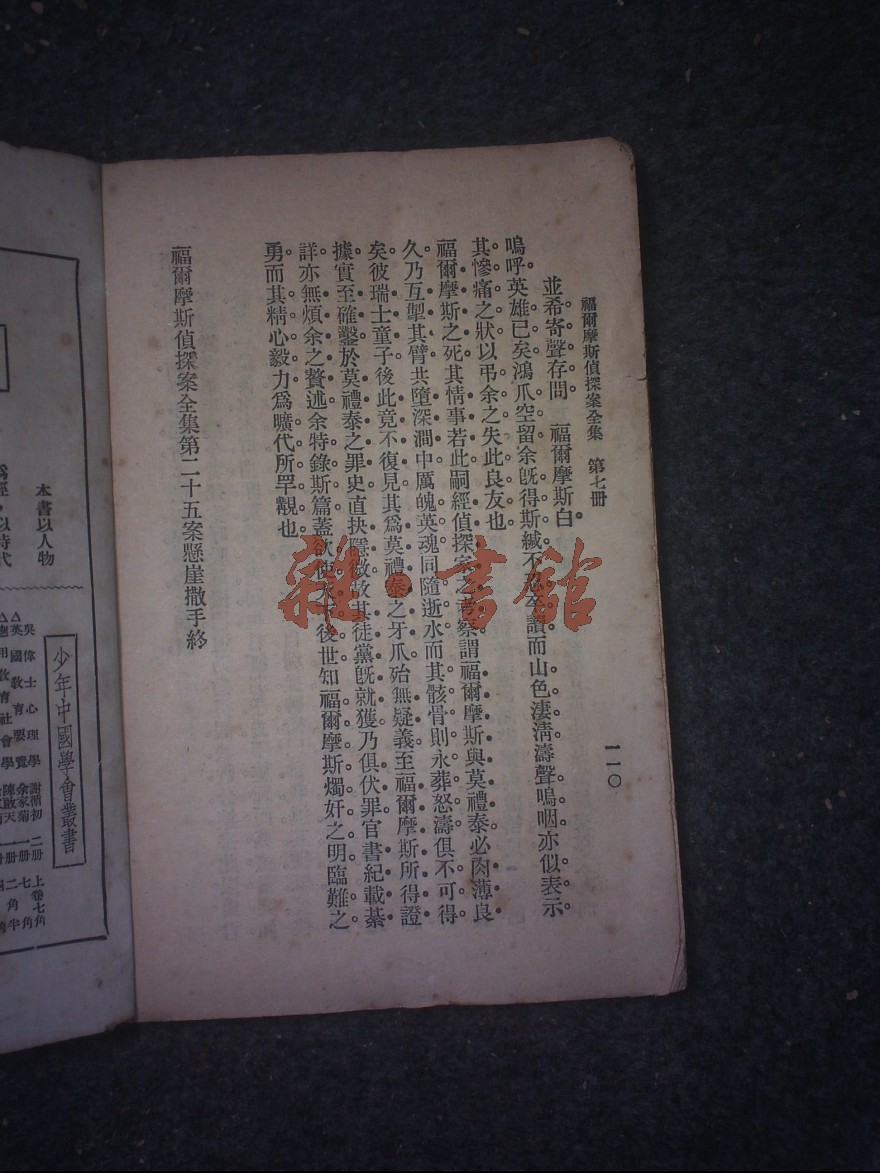 福爾摩斯偵探案全集　第七册
一一〇
並希寄聲存問。　福爾摩斯白。
嗚呼。英雄已矣。鴻爪空留。余旣得斯緘。不忍卒讀。而山色淒淸。濤聲嗚咽。亦似表示
其慘痛之狀。以弔余之失此良友也。
福爾摩斯之死。其情事若此。嗣經偵探家之考察。謂福爾摩斯與莫禮泰必肉薄良
久。乃互掣其臂。共墮深澗中。厲魄英魂。同隨逝水。而其骸骨則永葬怒濤。俱不可得
矣。彼瑞士童子。後此竟不復見。其爲莫禮泰之牙爪。殆無疑義。至福爾摩斯所得證
據。實至確鑿。於莫禮泰之罪史。直抉隱微。故其徒黨旣就獲。乃俱伏罪。官書紀載綦
詳。亦無煩余之贅述。余特錄斯篇。蓋欲使天下後世。知福爾摩斯燭奸之明。臨難之
勇。而其精心毅力。爲曠代所罕覯也。
福爾摩斯偵探案全集第二十五案懸崖撒手終
雜·書館
本書以人物
爲經·以時代
少年中國學會叢書
吳偉士心理學　謝循初　二册　上卷七角
△英國敎育要覽　余家菊　一册　七角
敎育社會學　陳啟天　一册　二角半